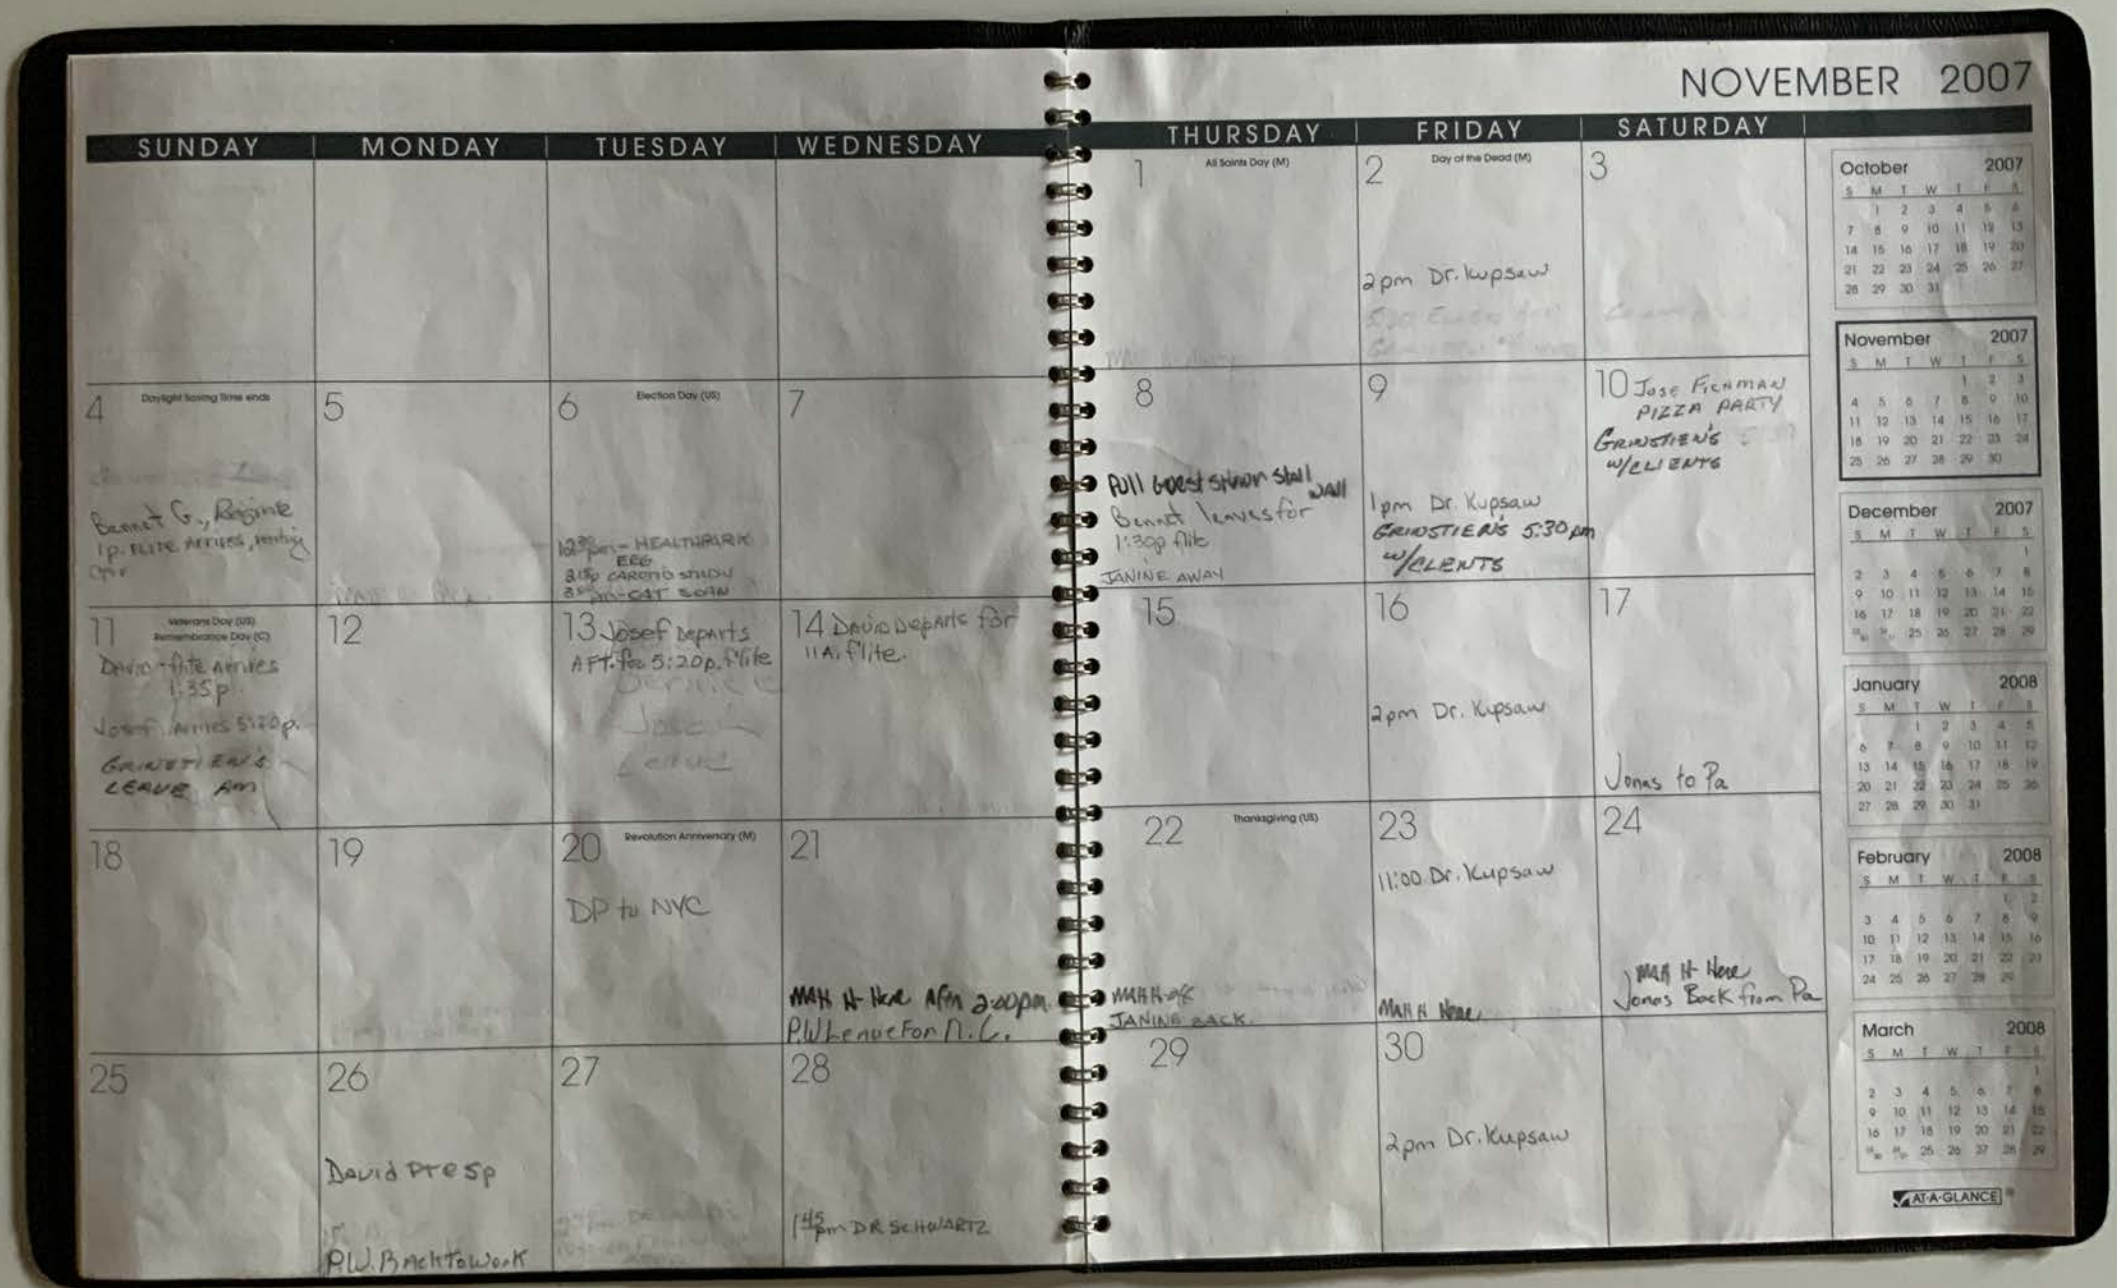 NOVEMBER 2007
SUNDAY MONDAY TUESDAY WEDNESDAY THURSDAY FRIDAY SATURDAY
1 All Saints Day (M)
2 Day of the Dead (M)
2pm Dr. Kupsaw
3
4 Daylight Saving Time ends
Bennet G., Regine
1p. FLITE Arrives, renting
car
5
6 Election Day (US)
12:30pm - HEALTHPARK
EEG
2:15p CAROTID STUDY
CAT SCAN
7
8
Pull Guest Shower Stall
WALL
Bennet leaves for
1:30p flite
JANINE AWAY
9
1pm Dr. Kupsaw
GRINSTIEN'S 5:30pm
w/CLIENTS
10 Jose FICHMAN
PIZZA PARTY
GRINSTIEN'S
w/CLIENTS
11 Veterans Day (US)
Remembrance Day (C)
David - flite Arrives
1:35p
Josef Arrives 5:20p.
GRINSTIEN'S
LEAVE AM
12
13 Josef Departs
AFT. for 5:20p. flite
Josef
Leave
14 David Departs for
11A. flite.
15
16
2pm Dr. Kupsaw
17
Jonas to Pa
18
19
20 Revolution Anniversary (M)
DP to NYC
21
MAH N- Here After 2:00pm
P.W Leave For N.C.
22 Thanksgiving (US)
JANINE BACK
23
11:00 Dr. Kupsaw
MAH N Here
24
MAH N- Here
Jonas Back from Pa
25
26
David Pr esp
P.W. Back to Work
27
28
1:45pm DR SCHWARTZ
29
30
2pm Dr. Kupsaw
October 2007
S M T W T F S
1 2 3 4 5 6
7 8 9 10 11 12 13
14 15 16 17 18 19 20
21 22 23 24 25 26 27
28 29 30 31
November 2007
S M T W T F S
1 2 3
4 5 6 7 8 9 10
11 12 13 14 15 16 17
18 19 20 21 22 23 24
25 26 27 28 29 30
December 2007
S M T W T F S
1
2 3 4 5 6 7 8
9 10 11 12 13 14 15
16 17 18 19 20 21 22
23/30 24/31 25 26 27 28 29
January 2008
S M T W T F S
1 2 3 4 5
6 7 8 9 10 11 12
13 14 15 16 17 18 19
20 21 22 23 24 25 26
27 28 29 30 31
February 2008
S M T W T F S
1 2
3 4 5 6 7 8 9
10 11 12 13 14 15 16
17 18 19 20 21 22 23
24 25 26 27 28 29
March 2008
S M T W T F S
1
2 3 4 5 6 7 8
9 10 11 12 13 14 15
16 17 18 19 20 21 22
23/30 24/31 25 26 27 28 29
AT-A-GLANCE®